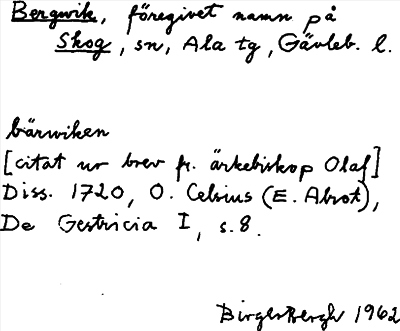 Bergwik, föregivet namn på
Skog, sn, Ala tg, Gävleb. l.
bärwiken
[citat ur brev fr. ärkebiskop Olaf]
Diss. 1720, O. Celsius (E. Abrot),
De Gestricia I, s. 8.
Birger Bergh 1962